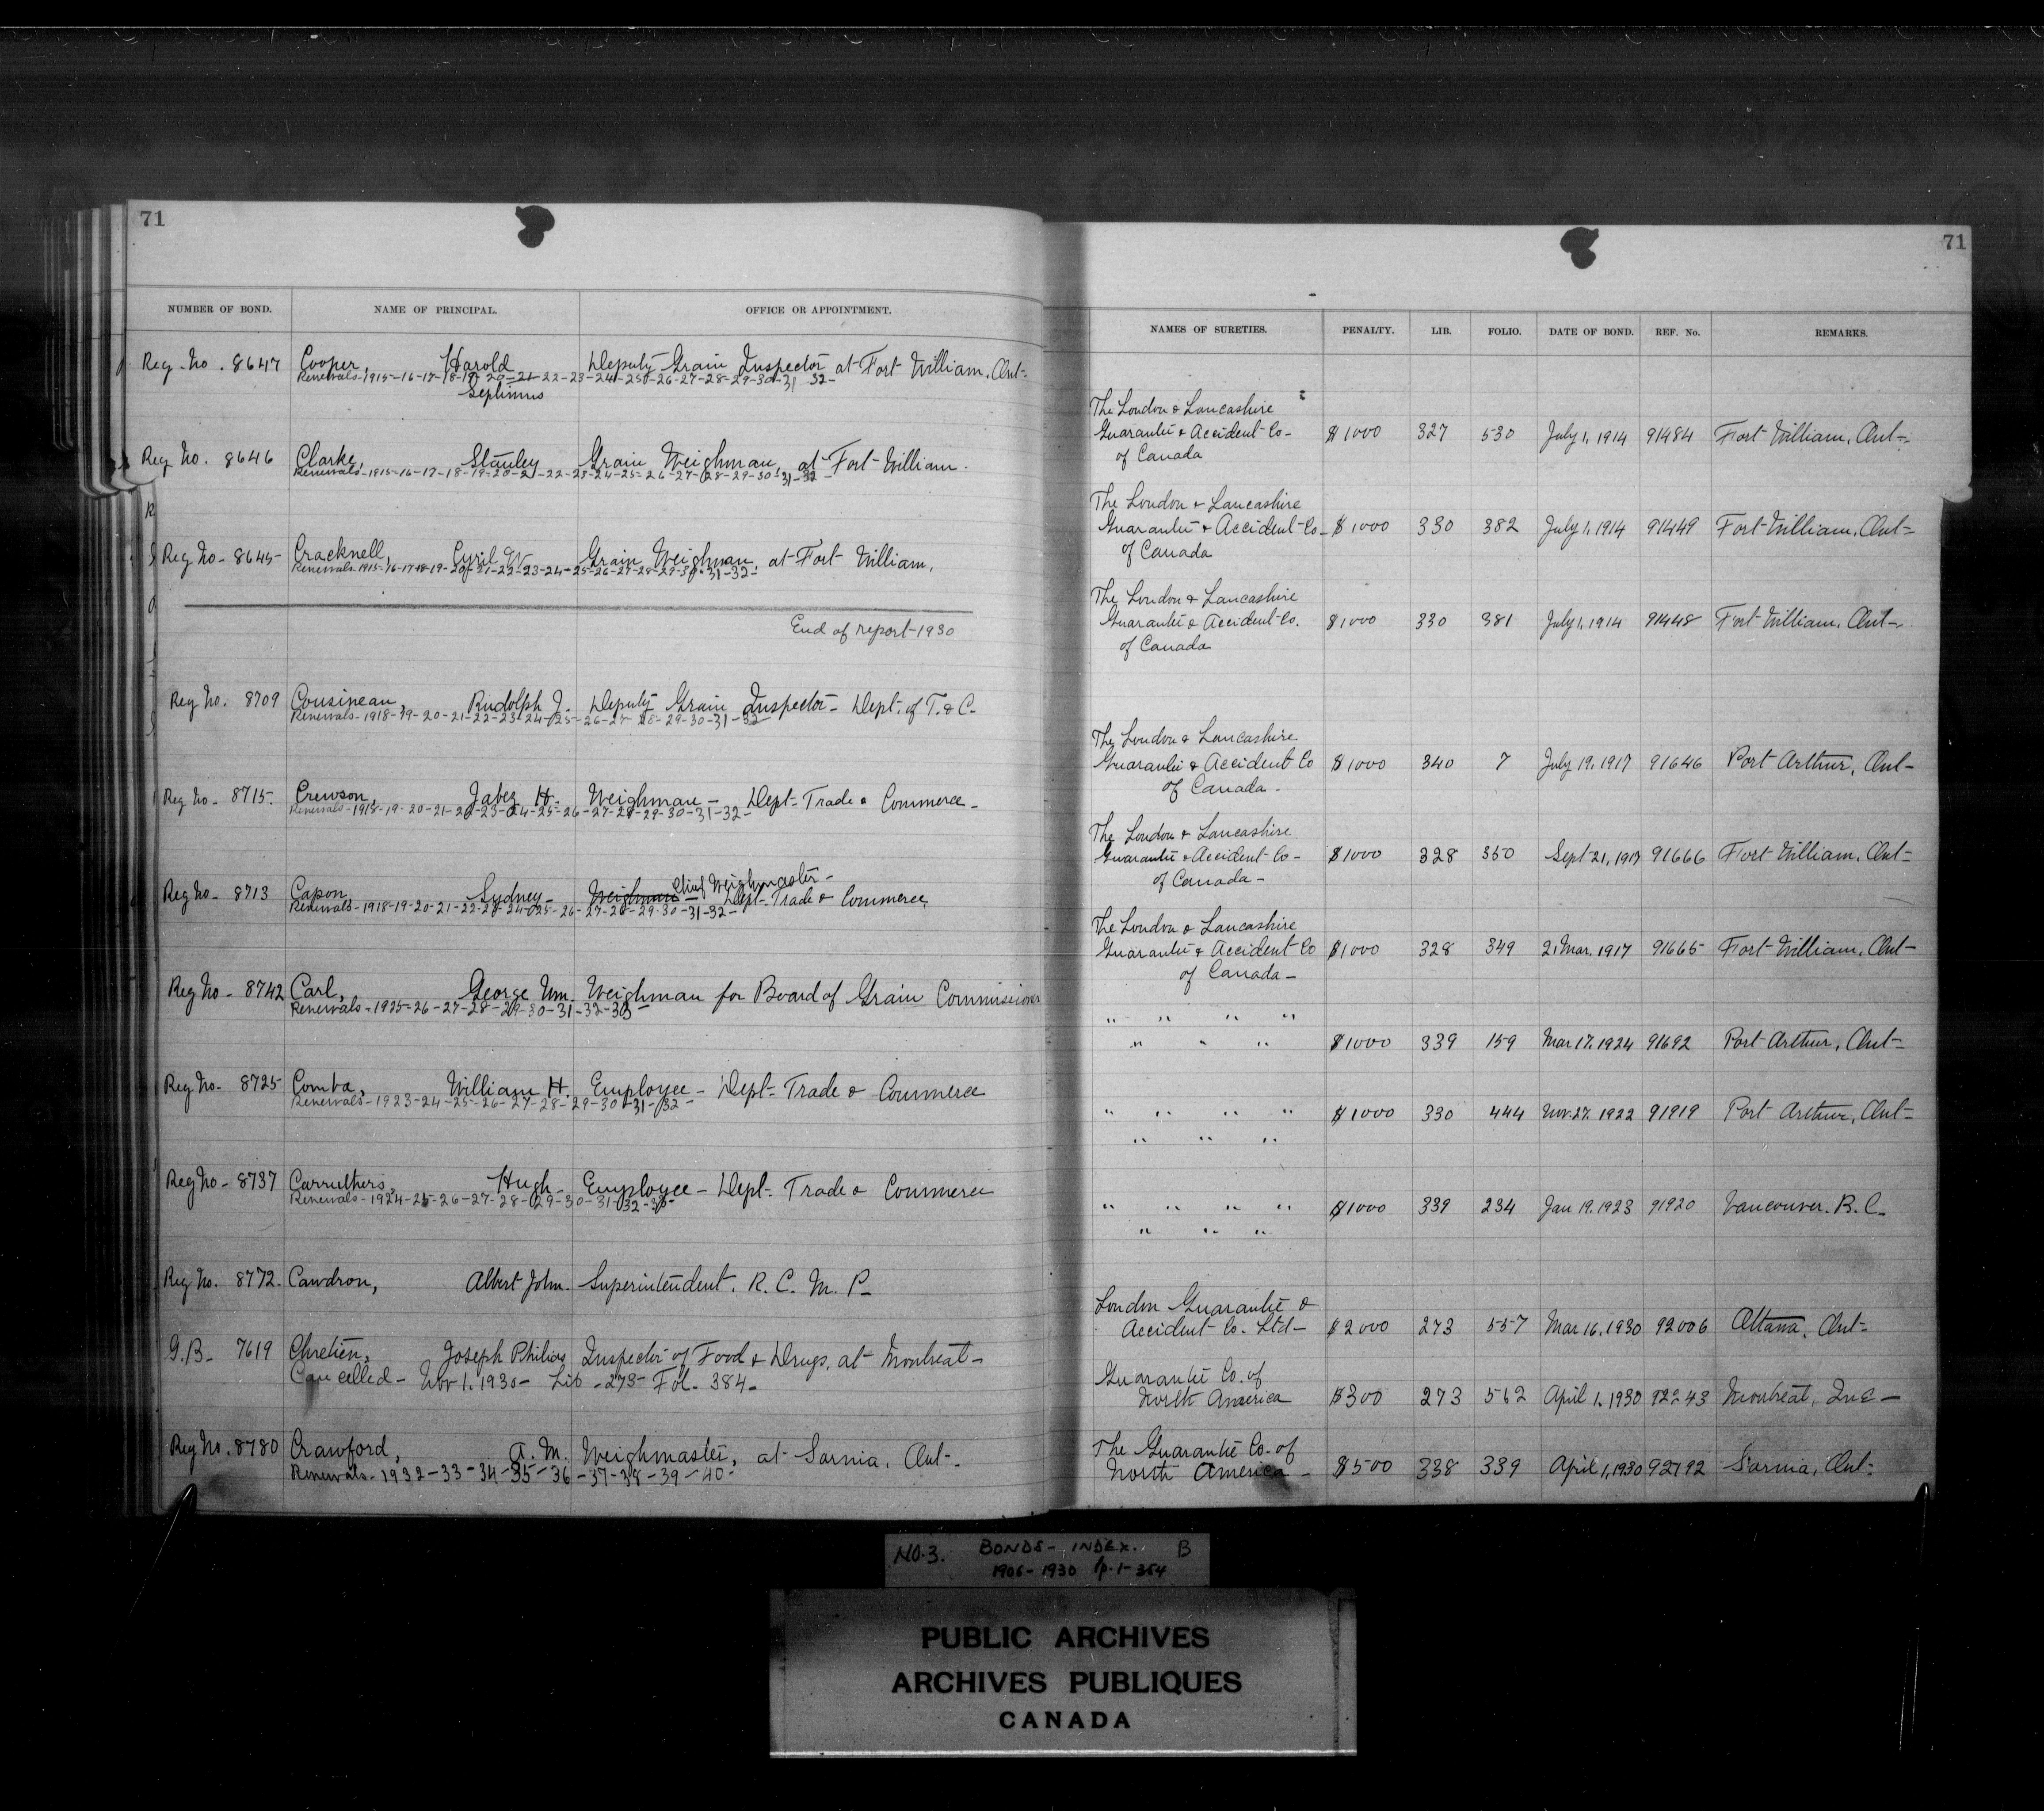 71
NUMBER OF BOND. NAME OF PRINCIPAL. OFFICE OR APPOINTMENT.
Reg. No. 8647 Cooper, Harold Deputy Grain Inspector at Fort William. Ont-
Renewals-1915-16-17-18-19-20-21-22-23-24-25-26-27-28-29-30-31 32-
Septimus
Reg No. 8646 Clarke, Stanley Grain Weighman, at Fort William.
Renewals-1915-16-17-18-19-20-21-22-23-24-25-26-27-28-29-30-31-32-
Reg No- 8645- Cracknell, Cyril W. Grain Weighman, at Fort William,
Renewals-1915-16-17-18-19-20-21-22-23-24-25-26-27-28-29-30-31-32-
End of report-1930
Reg No. 8709 Cousineau, Rudolph J. Deputy Grain Inspector- Dept. of T. & C-
Renewals-1918-19-20-21-22-23-24-25-26-27-28-29-30-31-32-
Reg No- 8715. Crewson, Jabez H. Weighman- Dept-Trade & Commerce-
Renewals-1918-19-20-21-22-23-24-25-26-27-28-29-30-31-32-
Chief Weighmaster-
Reg No- 8713 Capon, Sydney- Weighman- Dept-Trade & Commerce,
Renewals-1918-19-20-21-22-23-24-25-26-27-28-29-30-31-32-
Reg No- 8742 Carl, George Wm. Weighman for Board of Grain Commissioners
Renewals-1925-26-27-28-29-30-31-32-33-
Reg No- 8725 Comba, William H. Employee- Dept-Trade & Commerce
Renewals-1923-24-25-26-27-28-29-30-31-32-
Reg No- 8737 Carruthers, Hugh- Employee- Dept-Trade & Commerce
Renewals-1924-25-26-27-28-29-30-31-32-33-
Reg No. 8772- Cawdron, Albert John. Superintendent. R. C. M. P-
G.B- 7619 Chretien, Joseph Philias Inspector of Food & Drugs, at Montreal-
Cancelled- Nov 1. 1930- Lib-273-Fol. 384-
Reg No. 8780 Crawford, A. M. Weighmaster, at Sarnia. Ont-
Renewals-1932-33-34-35-36-37-38-39-40-
71
NAMES OF SURETIES. PENALTY. LIB. FOLIO. DATE OF BOND. REF. No. REMARKS.
The London & Lancashire
Guarantee & Accident Co- $1000 327 530 July 1, 1914 91484 Fort William, Ont-
of Canada
The London & Lancashire
Guarantee & Accident Co- $1000 330 382 July 1, 1914 91449 Fort William. Ont-
of Canada
The London & Lancashire
Guarantee & Accident Co. $1000 330 381 July 1, 1914 91448 Fort William, Ont-
of Canada
The London & Lancashire
Guarantee & Accident Co $1000 340 7 July 19, 1917 91646 Port Arthur, Ont-
of Canada-
The London & Lancashire
Guarantee & Accident Co- $1000 328 350 Sept 21, 1917 91666 Fort William. Ont-
of Canada-
The London & Lancashire
Guarantee & Accident Co $1000 328 349 21 Mar. 1917 91665 Fort William. Ont-
of Canada-
" " " "
" " " $1000 339 159 Mar 17, 1924 91692 Port Arthur, Ont-
" " " " $1000 330 444 Nov. 27, 1922 91919 Port Arthur, Ont-
" " "
" " " " $1000 339 234 Jan 19. 1923 91920 Vancouver. B. C-
" " "
London Guarantee &
Accident Co. Ltd- $2000 273 557 Mar 16, 1930 92006 Ottawa, Ont-
Guarantee Co. of
North America $300 273 562 April 1, 1930 92243 Montreal, Que-
The Guarantee Co. of
North America- $500 338 339 April 1, 1930 92792 Sarnia, Ont-
NO. 3. BONDS- INDEX. B
1906-1930 p. 1-354
PUBLIC ARCHIVES
ARCHIVES PUBLIQUES
CANADA